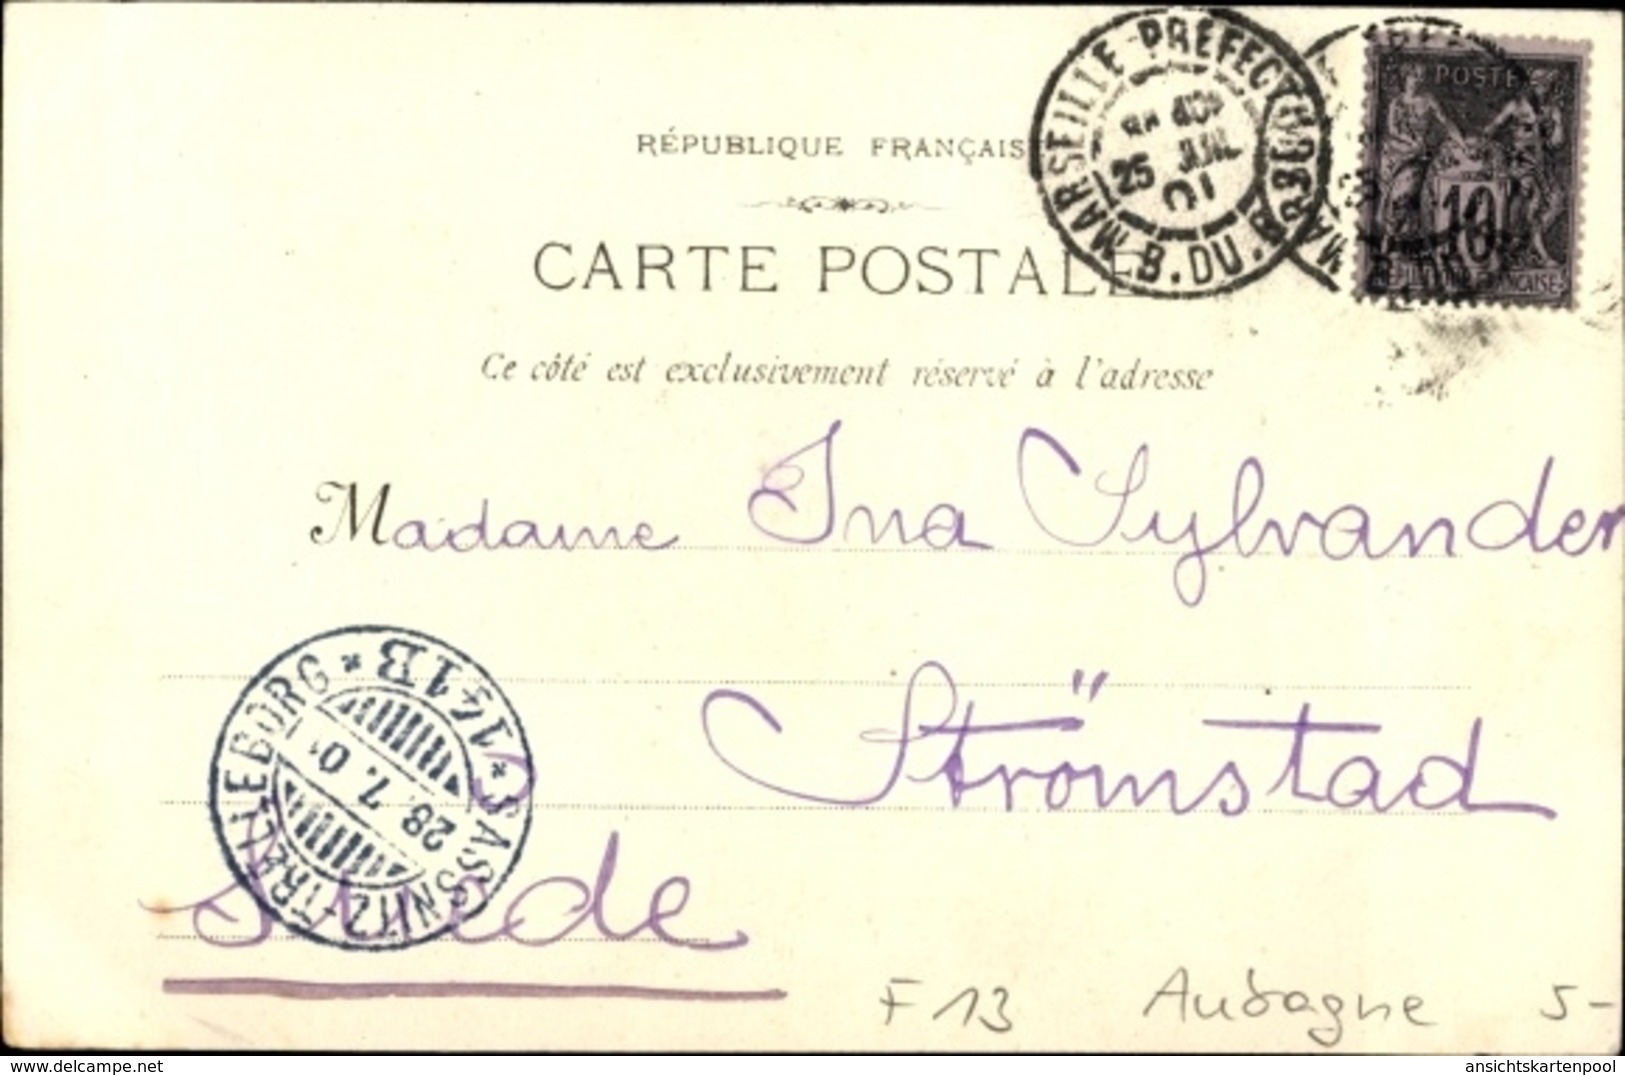 RÉPUBLIQUE FRANÇAIS
CARTE POSTALE
Ce côté est exclusivement réservé à l'adresse
MARSEILLE PRÉFECTURE
25 JUIL 01
B. DU. R.
POSTE
10
Madame Ina Sylvander
Strömstad
Suède
SASSNITZ-TRELLEBORG * 141B *
28.7.01
F 13 Aubagne 5-
delcampe.net
ansichtskartenpool